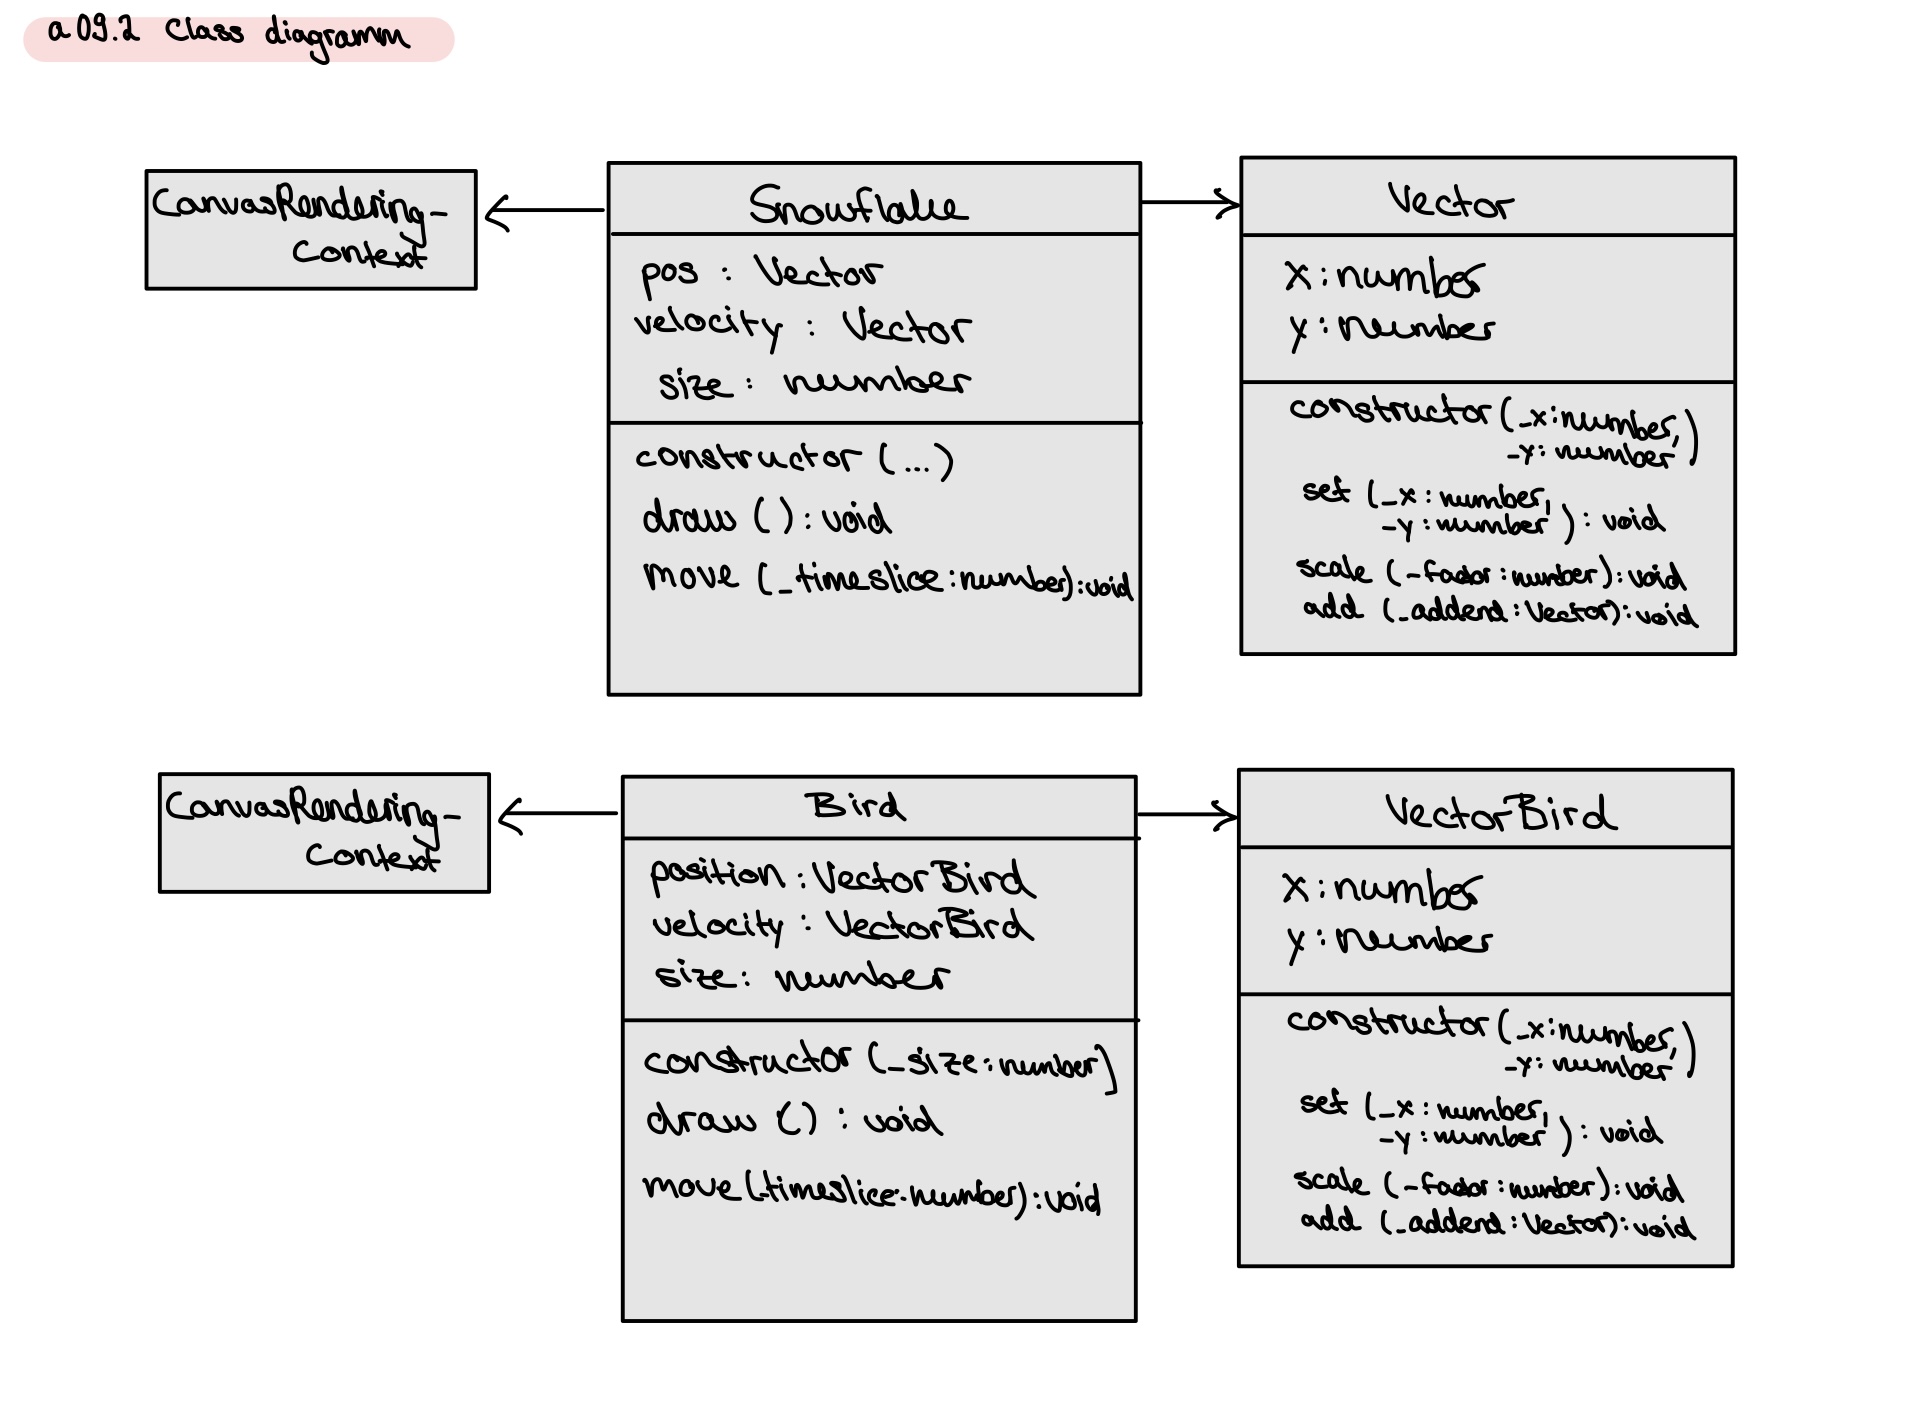 a 09.2 Class diagramm
CanvasRendering-
Context
Snowflake
pos : Vector
velocity : Vector
size : number
constructor (...)
draw () : void
move (_timeslice : number) : void
Vector
x : number
y : number
constructor (_x : number,
_y : number)
set (_x : number,
_y : number) : void
scale (_factor : number) : void
add (_addend : Vector) : void
CanvasRendering-
Context
Bird
position : VectorBird
velocity : VectorBird
size : number
constructor (_size : number)
draw () : void
move (_timeslice : number) : void
VectorBird
x : number
y : number
constructor (_x : number,
_y : number)
set (_x : number,
_y : number) : void
scale (_factor : number) : void
add (_addend : Vector) : void